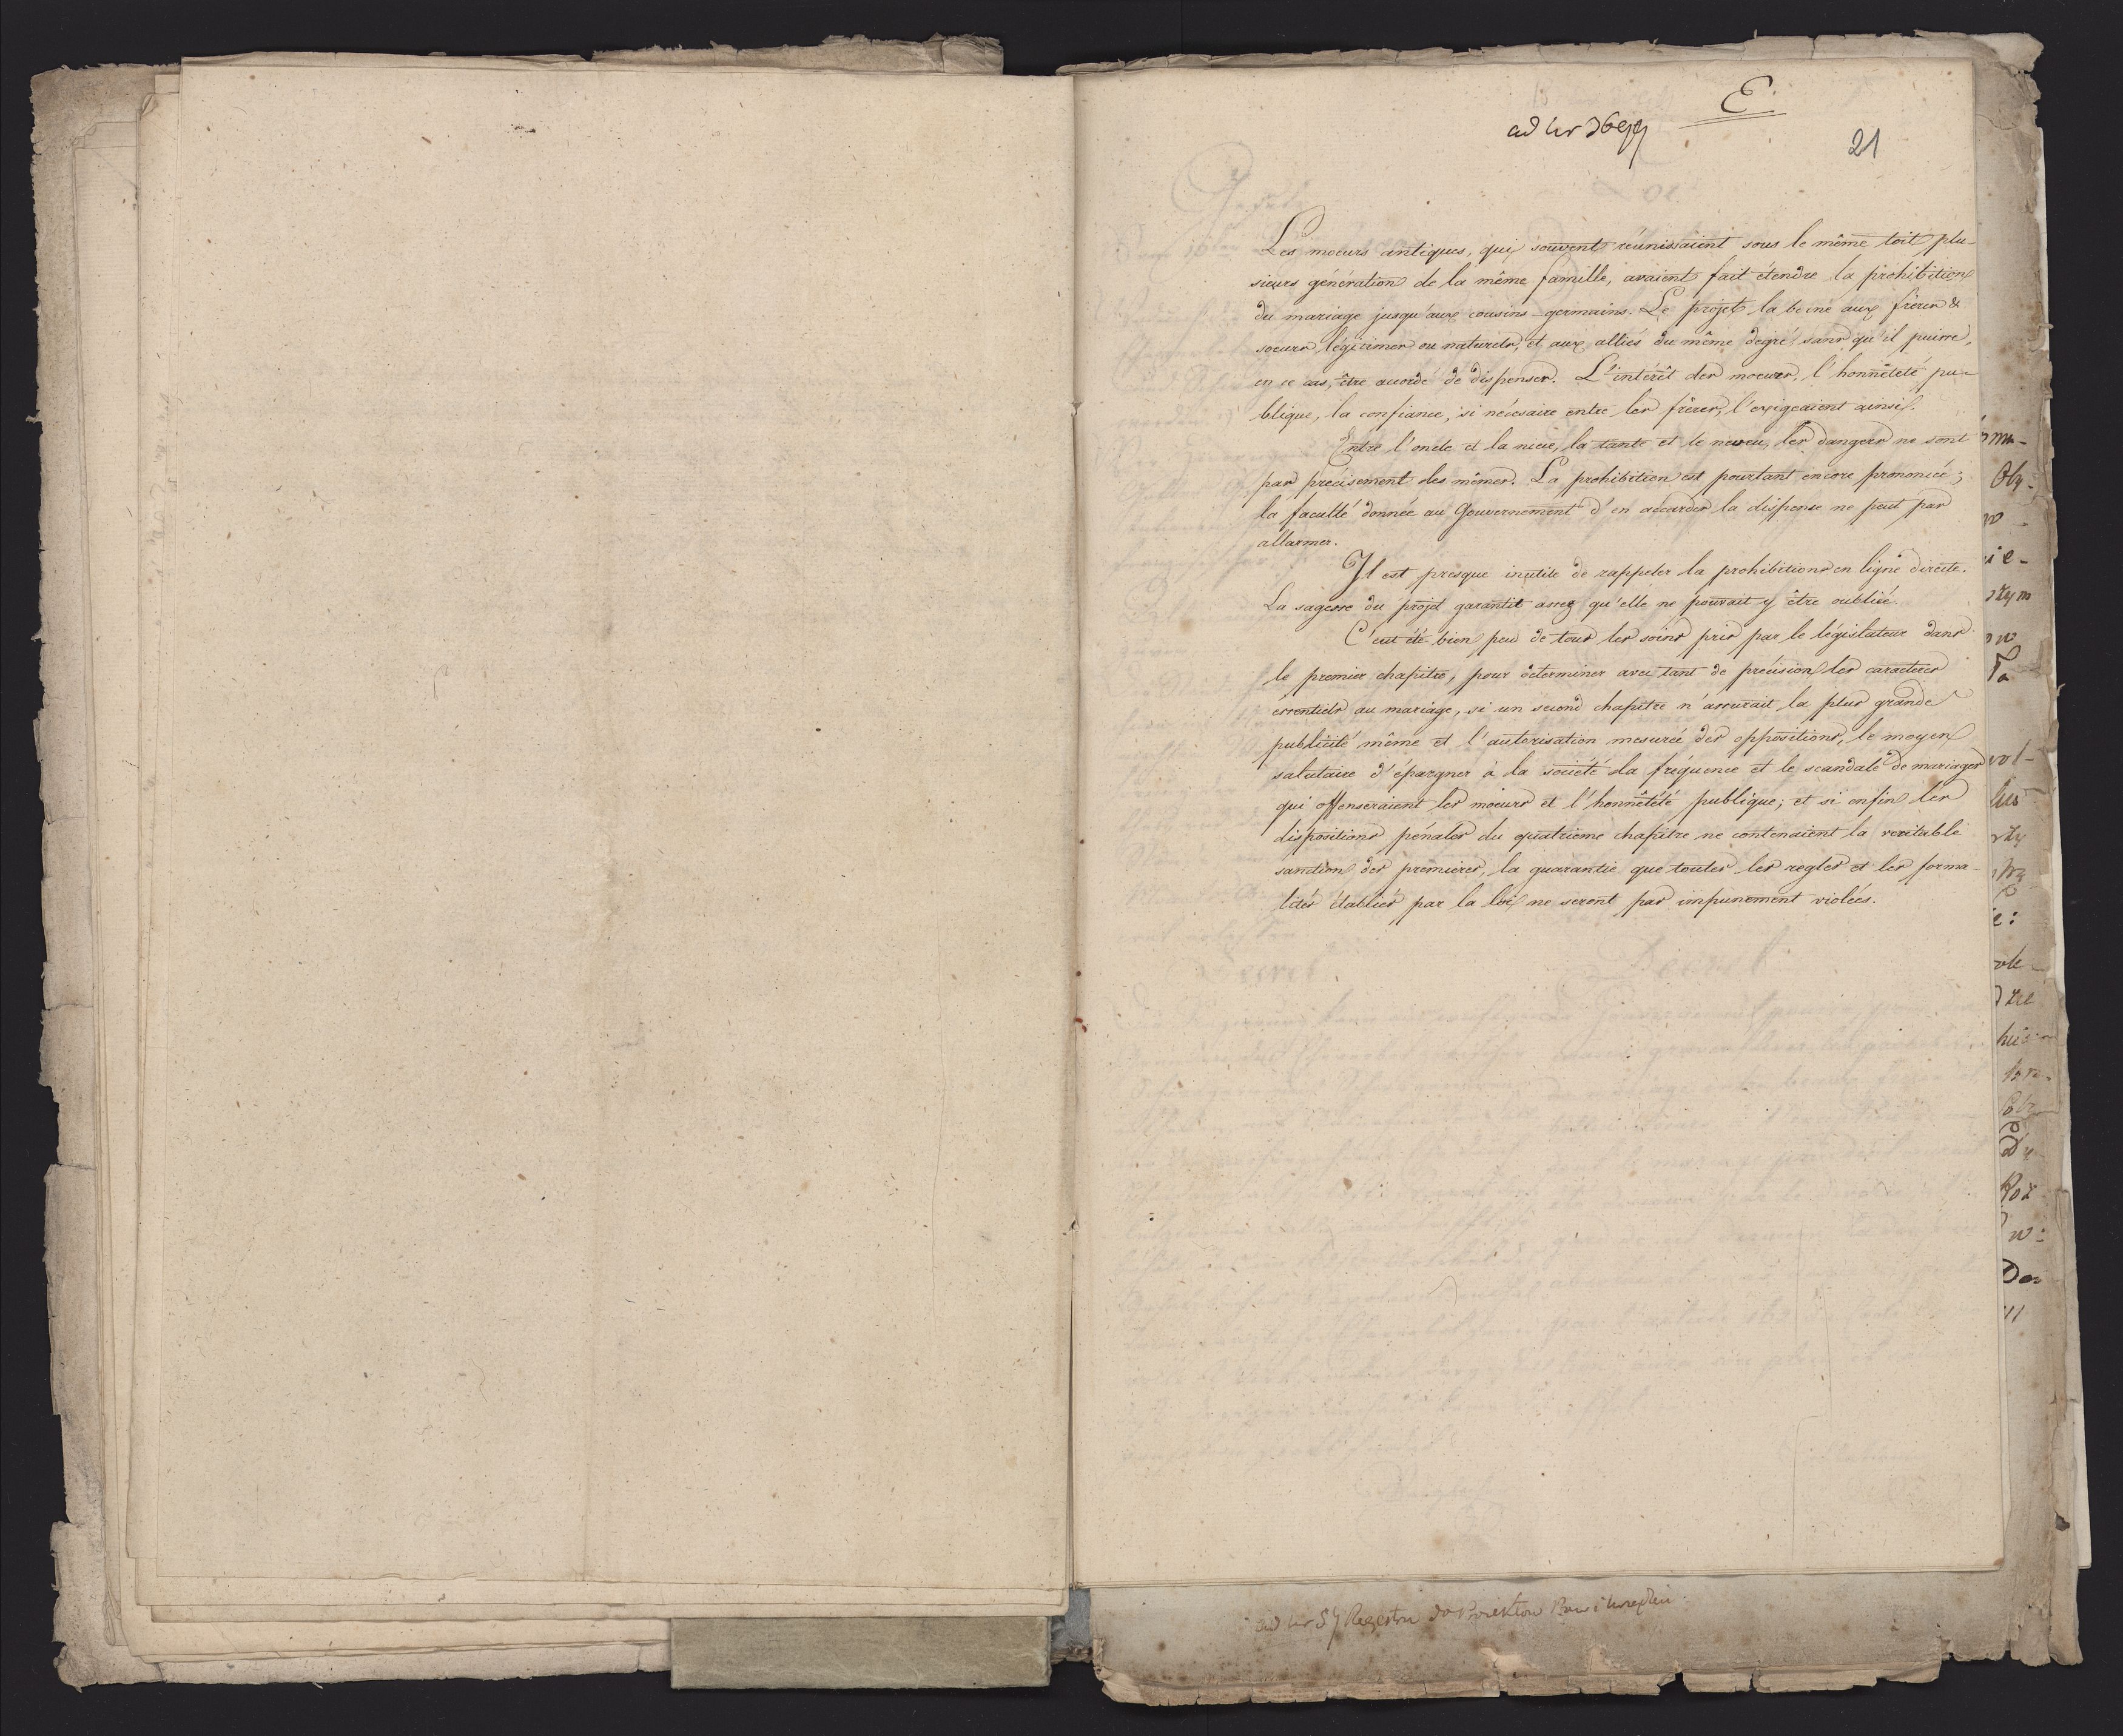 E.
ad Nr 3699
21
Les moeurs antiques, qui souvent réunissaient sous le même toit plu-
sieurs génération de la même famille, avaient fait étendre la prohibition
du mariage jusqu'aux cousins-germains. Le projet la borne aux frères &
soeurs légitimes ou naturels, et aux alliés du même degré sans qu'il puisse,
en ce cas, être acordé de dispenses. L'intérêt des moeurs, l'honnêteté pu-
blique, la confiance, si nécesaire entre les frères, l'exigeaient ainsi.
Entre l'oncle et la niece, la tante et le neveu, les dangers ne sont
pas precisement les mêmes. La prohibition est pourtant encore prononcée;
la faculté donnée au Gouvernement d'en accarder la dispense ne peut pas
allarmer.
Il est presque inutile de rappeler la prohibitions en ligne directe.
La sagesse du projet garantit assez qu'elle ne pouvait y être oubliée.
C'eut été bien peu de tous les soins pris par le législateur dans
le premier chapitre, pour determiner avec tant de précision les caracteres
essentiels au mariage, si un second chapitre n'assurait la plus grande
publicité même et l'autorisation mesurée des oppositions, le moyen
salutaire d'épargner à la société la fréquence et le scandale de mariages
qui offenseraient les moeurs et l'honnêtété publique; et si enfin les
dispositions pénales du quatrieme chapitre ne contenaient la veritable
sanction des premieres, la guarantie que toutes les regles et les forma-
lités établies par la loi ne seront pas impunement violées.
ad Nr 59 Regestru do Proiektow Praw i